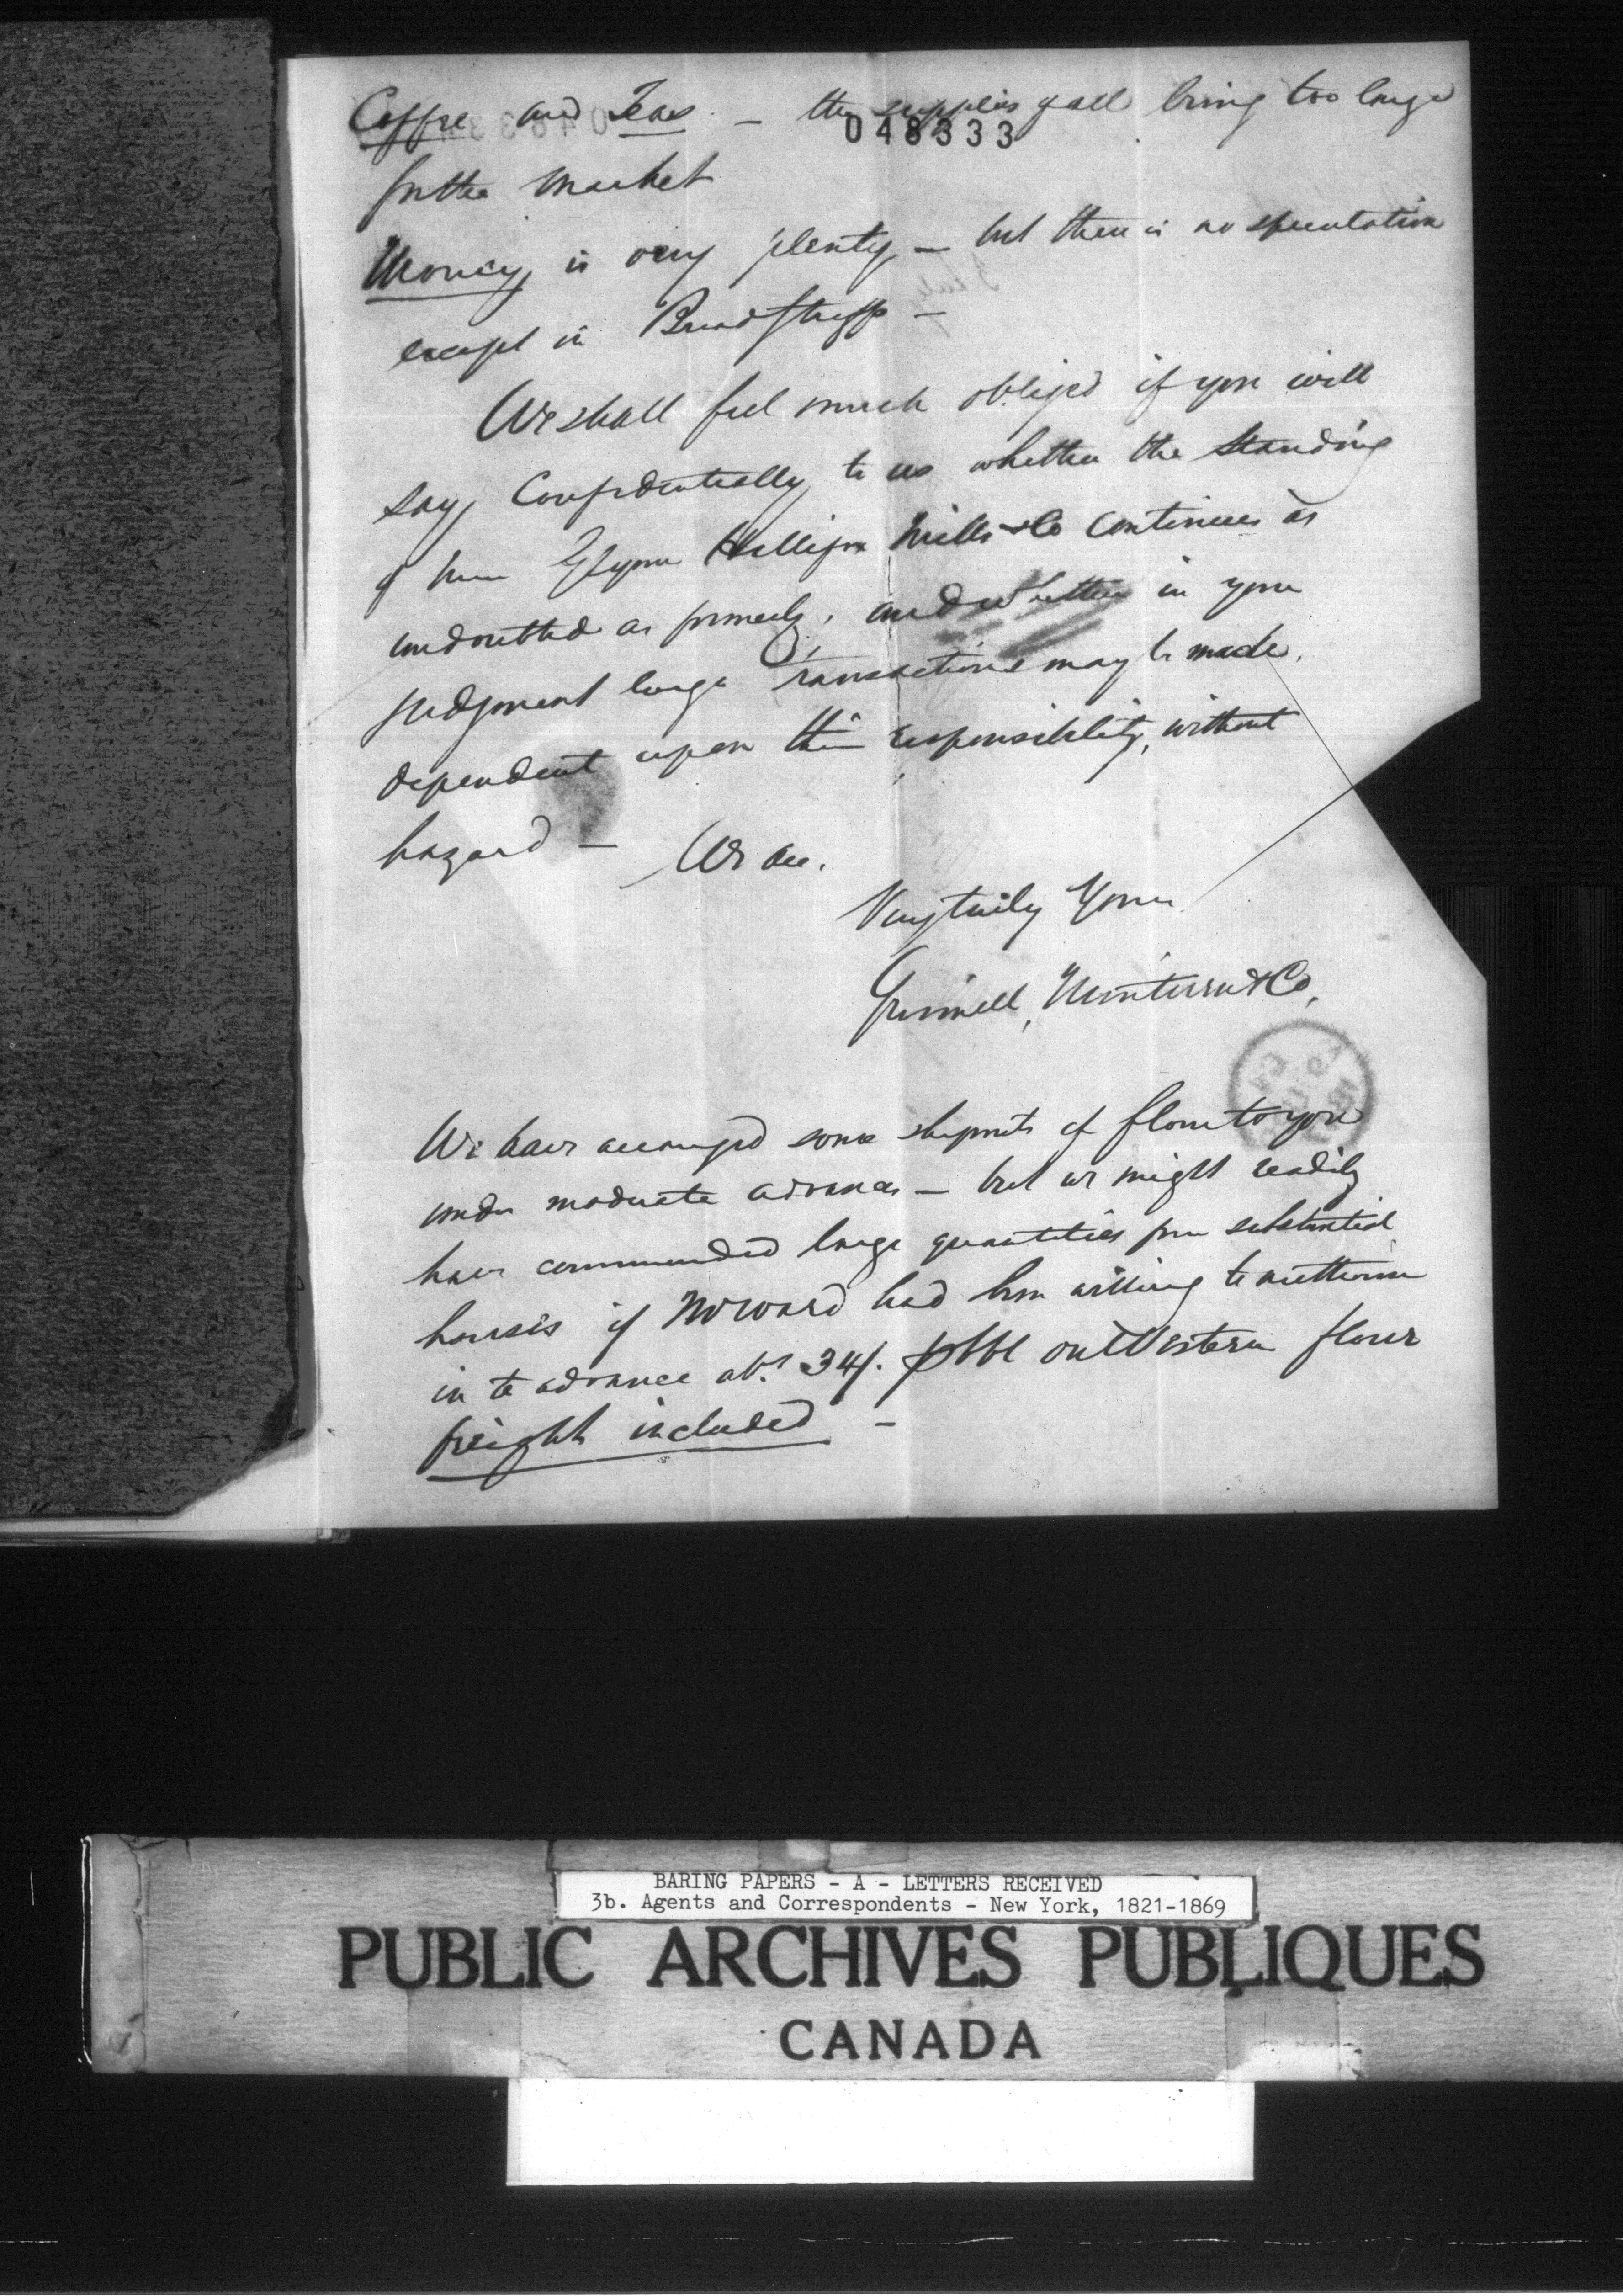 Coffee and Teas – the supplies of all being too large
048333
for the market
Money is very plenty – but there is no speculation
except in Breadstuffs –
We shall feel much obliged if you will
say confidentially to us whether the standing
of Glynn Hallifax Mills & Co continues as
undoubted as formerly, and whether in your
judgment large transactions may be made,
dependent upon their responsibility, without
hazard – We are.
Very truly Yours
Grinnell, Minturn & Co,
We have arranged some shipmts of flour to you
under moderate advances – but we might readily
have commanded large quantities from substantial
houses if Mr Ward had been willing to authorise
us to advance abt. 34/. p bbl on Western flour
freight included –
BARING PAPERS - A - LETTERS RECEIVED
3b. Agents and Correspondents - New York, 1821-1869
PUBLIC ARCHIVES PUBLIQUES
CANADA